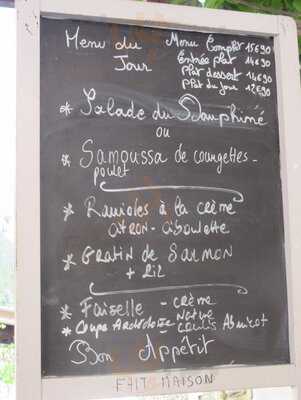 Menu du Jour
Menu Complet 15€90
Entrée plat 14€90
Plat dessert 14€90
Plat du jour 12€90
* Salade du Dauphiné
ou
* Samoussa de courgettes -
poulet
* Ravioles à la crème
citron - ciboulette
* Gratin de Saumon
+ Riz
* Faiselle - crème
* Coupe Ardéchoise - coulis Abricot
Bon Appétit
FAIT MAISON